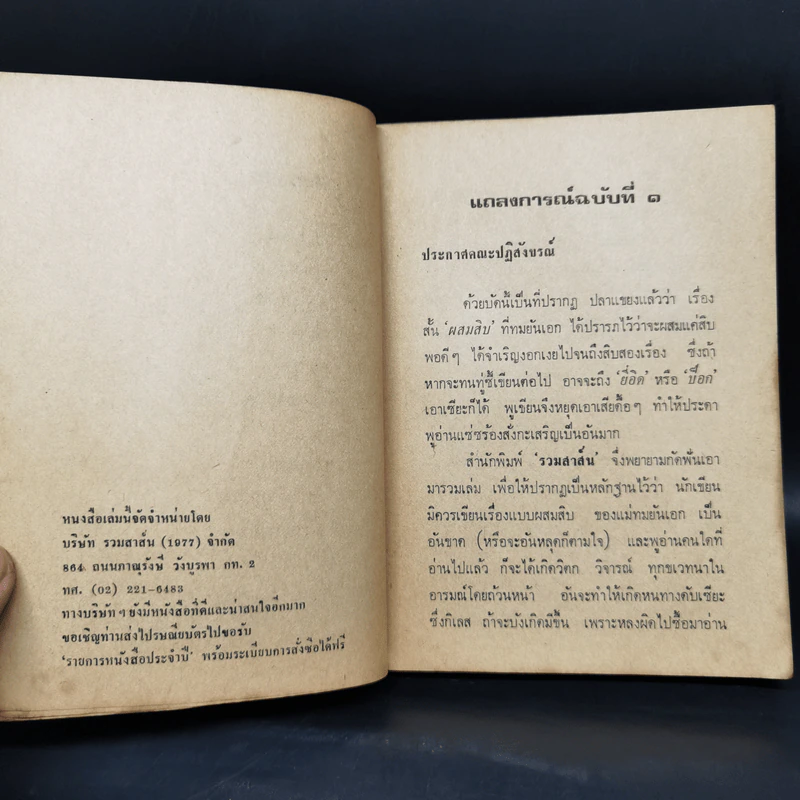 หนงสือเล่มนี้จัดจำหน่ายโดย
บริษัท รวมสาส์น (1977) จำกัด
864 ถนนภาณุรังษี วังบูรพา กท. 2
ทศ. (02) 221-6483
ทางบริษัท ฯ ยังมีหนังสือที่ดีและน่าสนใจอีกมาก
ขอเชิญท่านส่งไปรษณียบัตรไปขอรับ
‘รายการหนังสือประจำปี’ พร้อมระเบียบการสั่งซื้อได้ฟรี
แถลงการณ์ฉบับที่ ๑
ประกาศคณะปฏิสังขรณ์
ด้วยบัดนี้เป็นที่ปรากฏ ปลาแขยงแล้วว่า เรื่อง
สั้น ‘ผสมสิบ’ ที่ทมยันเอก ได้ปรารภไว้ว่าจะผสมแค่สิบ
พอดี ๆ ได้จำเริญงอกเงยไปจนถึงสิบสองเรื่อง ซึ่งถ้า
หากจะทนทู่ซี้เขียนต่อไป อาจจะถึง ‘ยี่อิด’ หรือ ‘ป๊อก’
เอาเซียะก็ได้ ผู้เขียนจึงหยุดเอาเสียดื้อ ๆ ทำให้ประดา
ผู้อ่านแซ่ซร้องสั่งกะเสริญเป็นอันมาก
สำนักพิมพ์ ‘รวมสาส์น’ จึงพยายามกัดฟันเอา
มารวมเล่ม เพื่อให้ปรากฏเป็นหลักฐานไว้ว่า นักเขียน
มิควรเขียนเรื่องแบบผสมสิบ ของแม่ทมยันเอก เป็น
อันขาด (หรือจะอันหลุดก็ตามใจ) และผู้อ่านคนใดที่
อ่านไปแล้ว ก็จะได้เกิดวิตก วิจารณ์ ทุกขเวทนาใน
อารมณ์โดยถ้วนหน้า อันจะทำให้เกิดหนทางดับเซียะ
ซึ่งกิเลส ถ้าจะบังเกิดมีขึ้น เพราะหลงผิดไปซื้อมาอ่าน